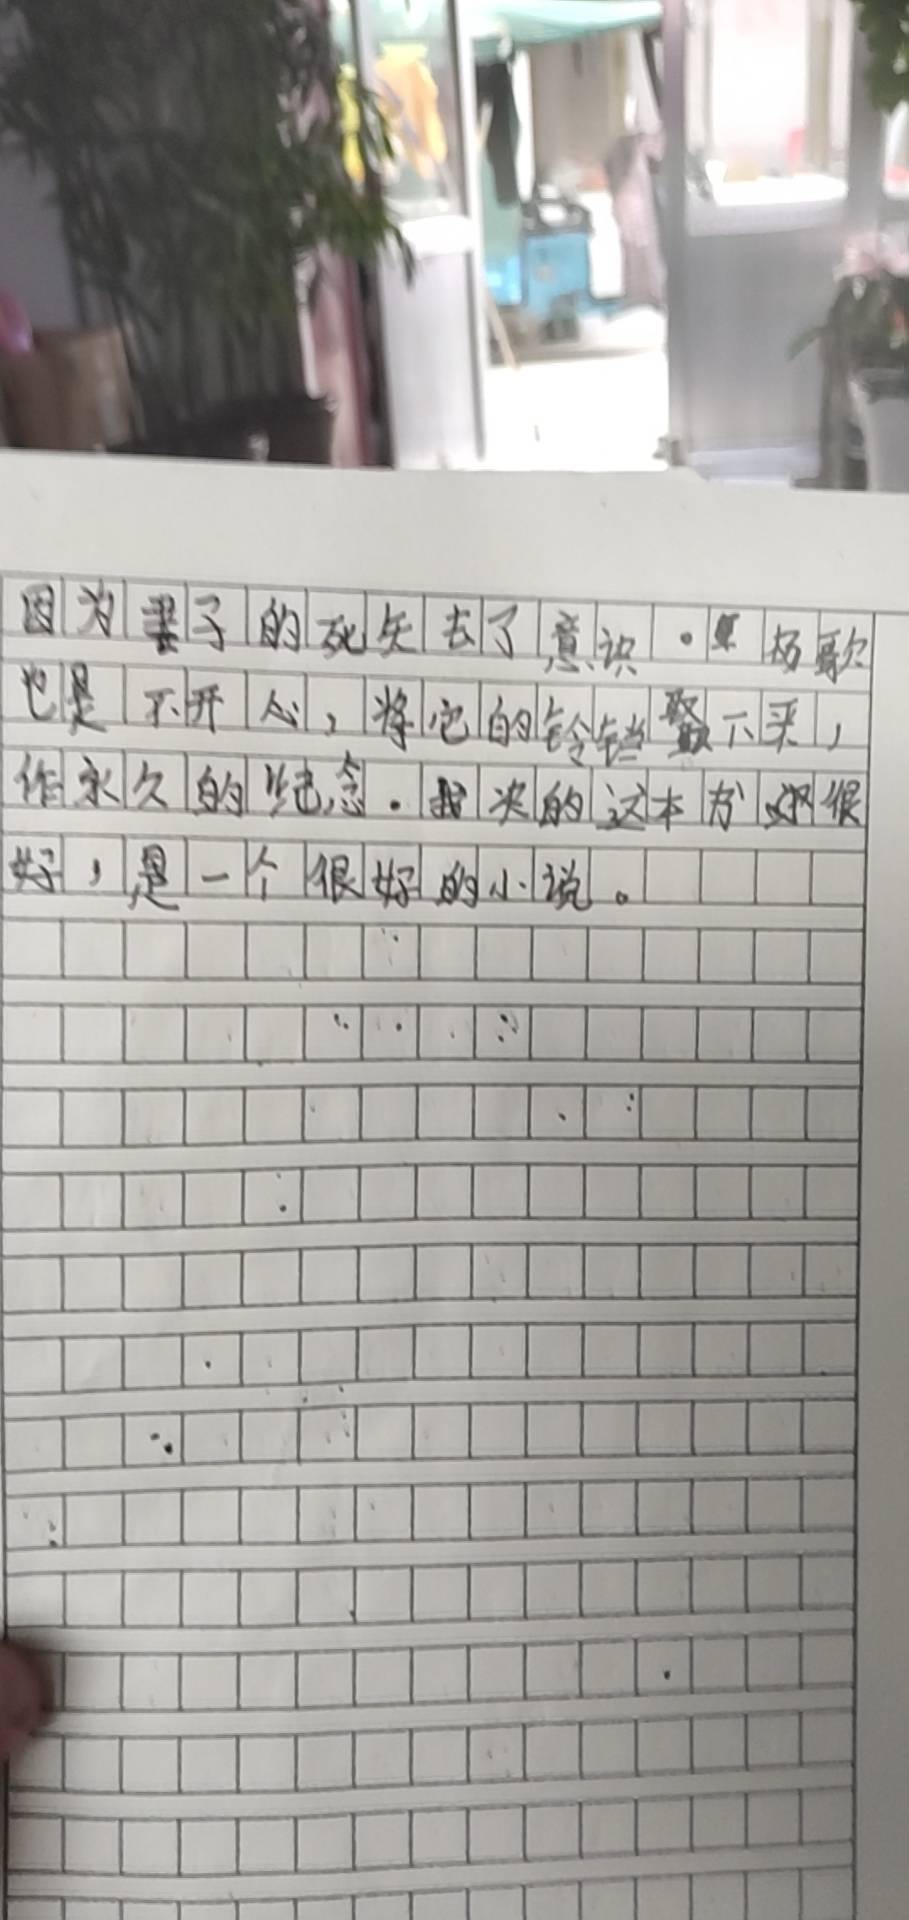 因为妻子的死失去了意识。杨歌
也是不开心，将它的铃铛取下来，
作永久的纪念。我决的这本书很
好，是一个很好的小说。